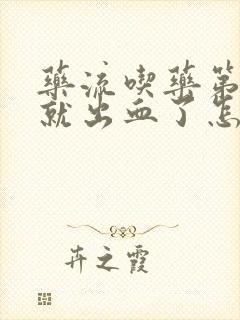 藥流喫藥第
就出血了怎
卉之霞